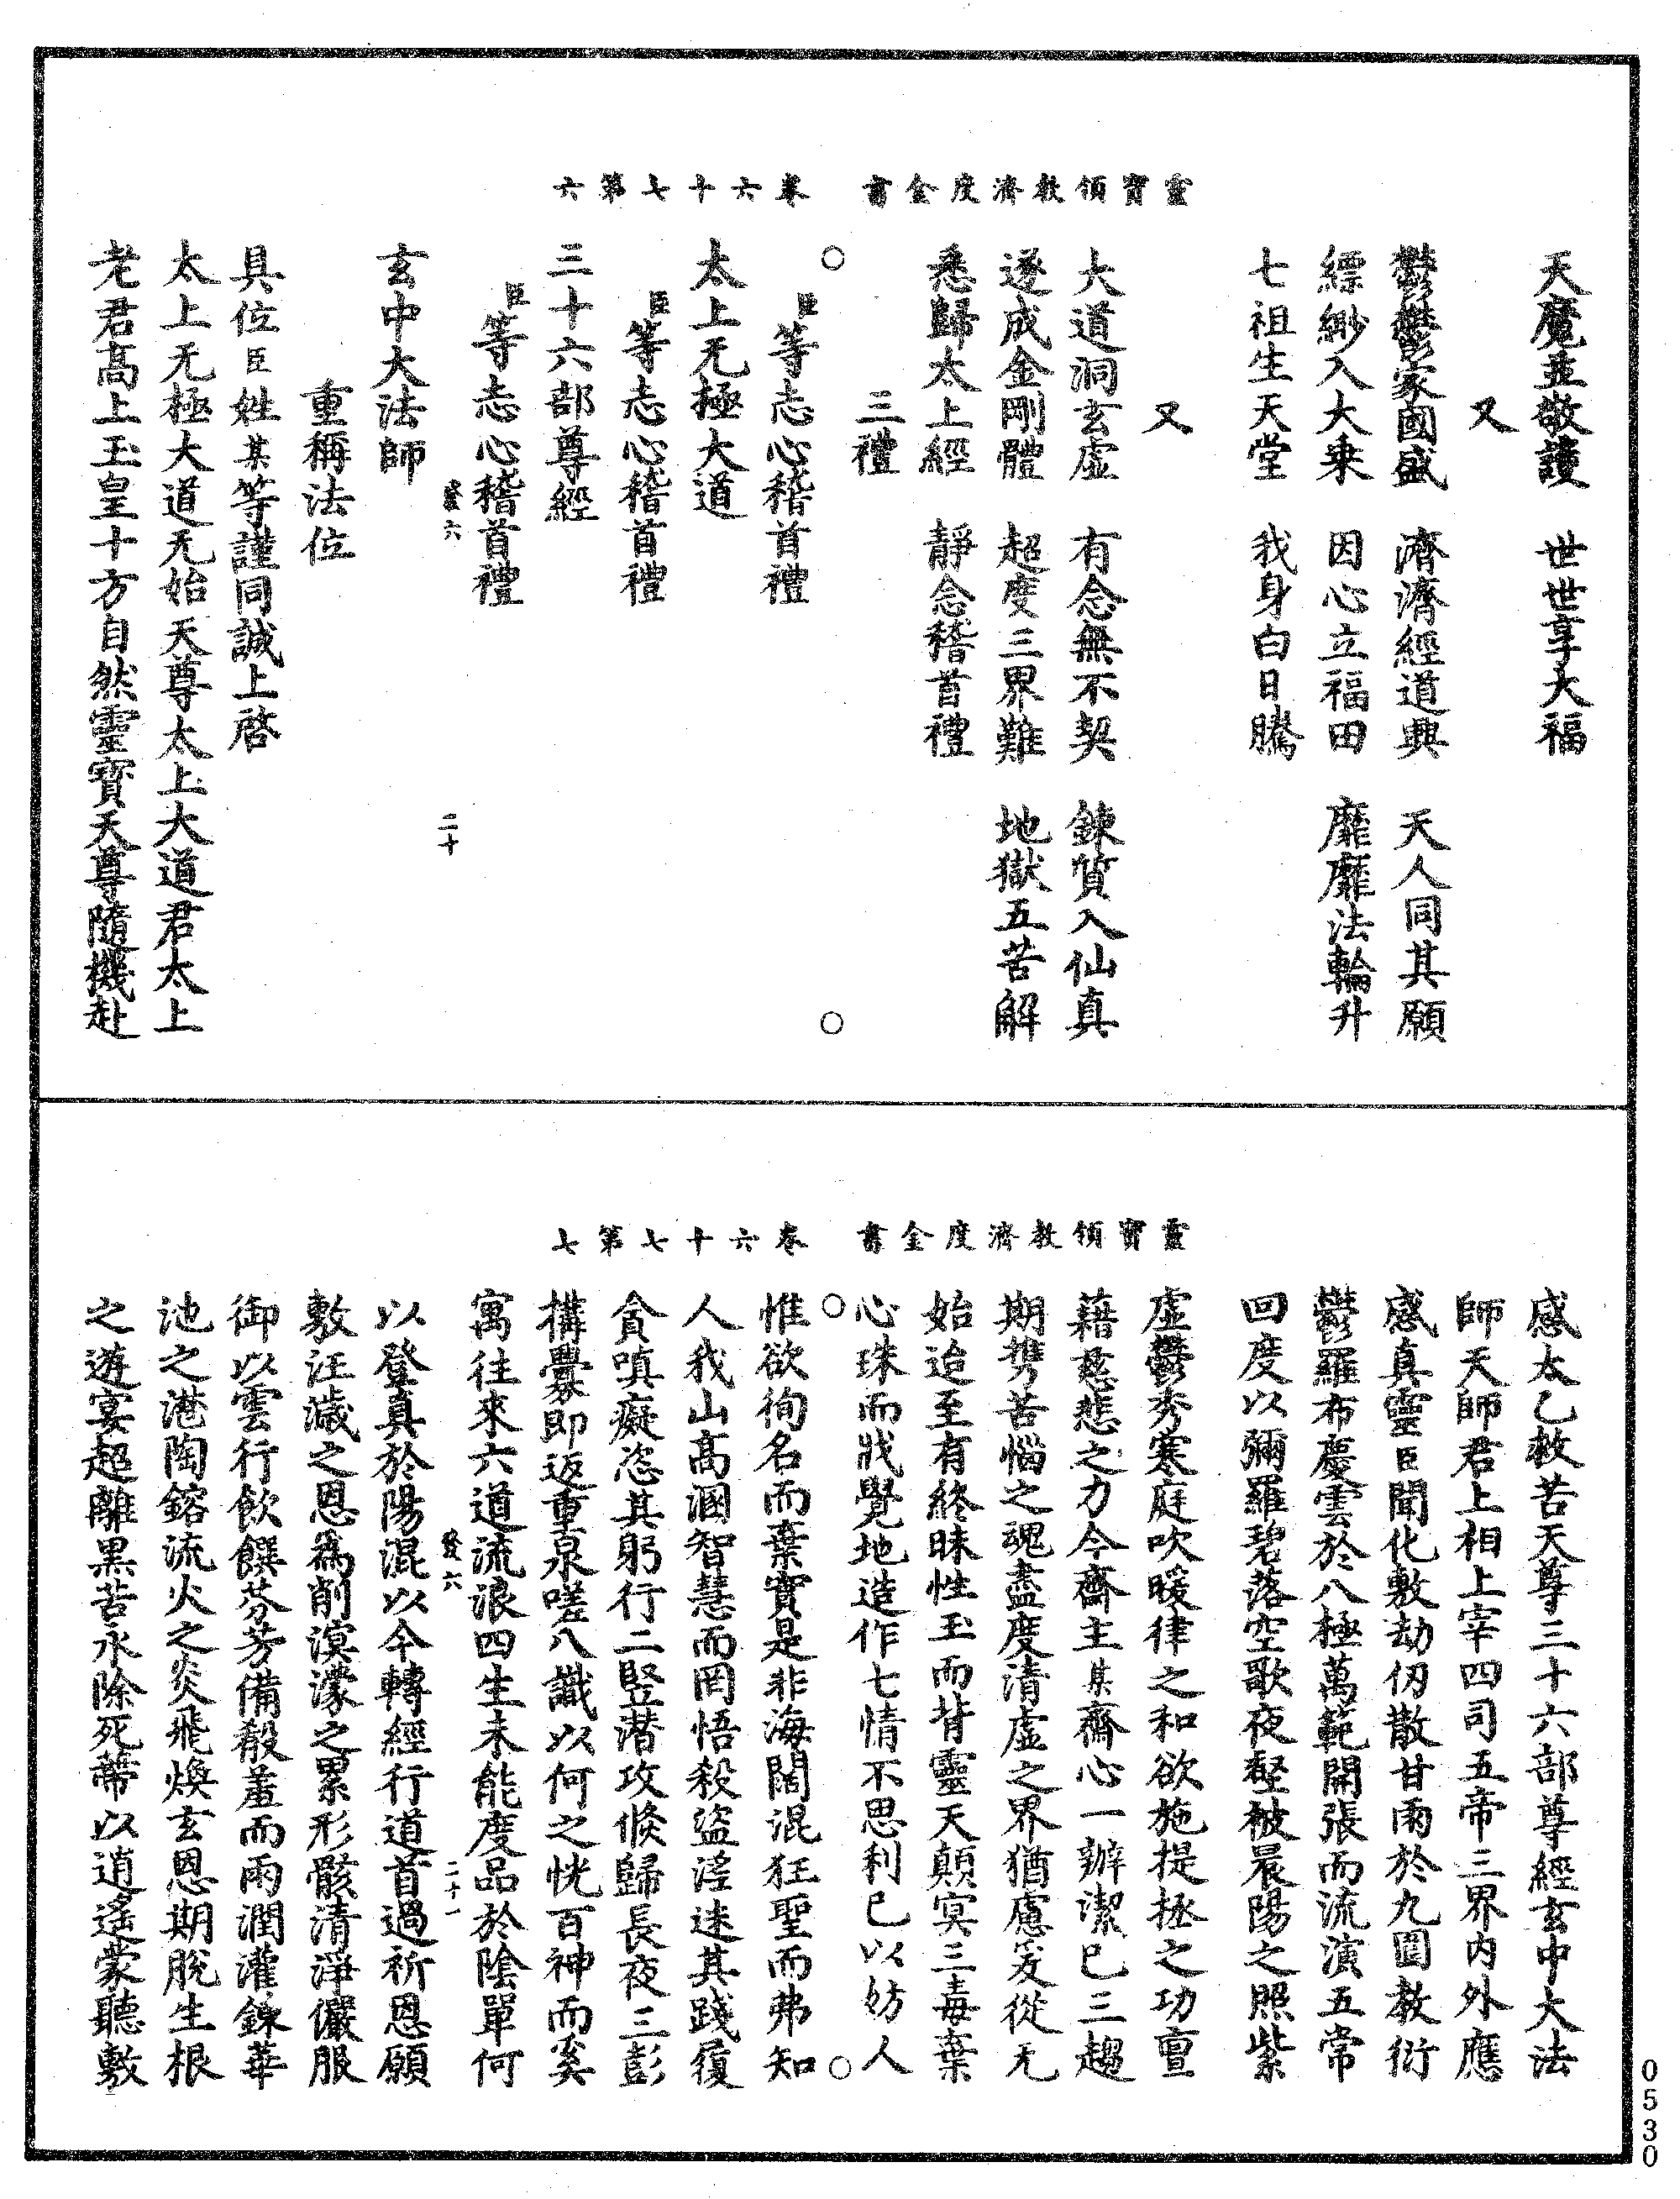 靈寶領教濟度金書　卷六十七第六
天魔並敬護　世世享大福
又
鬱鬱家國盛　濟濟經道興　天人同其願
縹緲入大乘　因心立福田　靡靡法輪升
七祖生天堂　我身白日騰
又
大道洞玄虛　有念無不契　鍊質入仙真
遂成金剛體　超度三界難　地獄五苦解
悉歸太上經　靜念稽首禮
三禮
○　○
臣等志心稽首禮
太上无極大道
臣等志心稽首禮
三十六部尊經
臣等志心稽首禮
六　二十
玄中大法師
重稱法位
具位臣姓某等謹同誠上啓
太上无極大道无始天尊太上大道君太上
老君高上玉皇十方自然靈寶天尊隨機赴
靈寶領教濟度金書　卷六十七第七
感太乙救苦天尊三十六部尊經玄中大法
師天師君上相上宰四司五帝三界內外應
感真靈臣聞化敷劫仞散甘雨於九圍教衍
鬱羅布慶雲於八極萬範開張而流演五常
回度以彌羅碧落空歌夜壑被晨陽之照紫
虛鬱秀寒庭吹暖律之和欲施提拯之功亶
藉慈悲之力今齋主某齋心一辦潔已三趨
期携苦惱之魂盡度清虛之界猶慮爰從无
始迨至有終昧性玉而背靈天顛冥三毒棄
心珠而戕覺地造作七情不思利已以妨人
○　○
惟欲徇名而棄實是非海闊混狂聖而弗知
人我山高溷智慧而罔悟殺盜滛迷其踐履
貪嗔癡恣其躬行二竪潛攻倐歸長夜三彭
構釁即返重泉嗟八識以何之恍百神而奚
寓往來六道流浪四生未能度品於陰單何
六　二十一
以登真於陽混以今轉經行道首過祈恩願
敷汪濊之恩爲削溟濛之累形骸清淨儼服
御以雲行飲饌芬芳備殽羞而雨潤灌鍊華
池之港陶鎔流火之炎飛煥玄恩期脫生根
之遊宴超離黑苦永除死蔕以逍遙蒙聽敷
0530